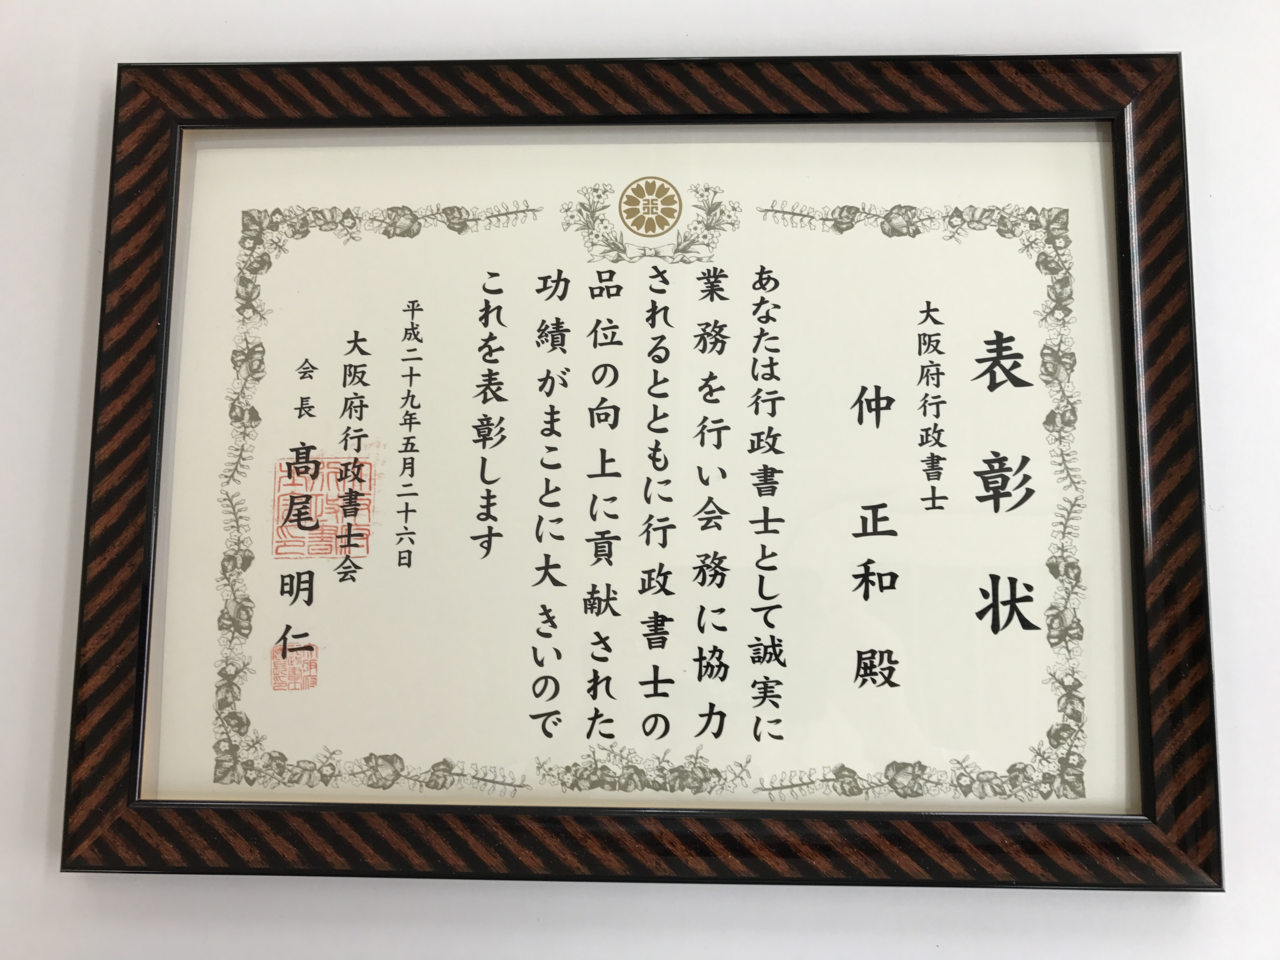 表彰状
大阪府行政書士
仲 正和 殿
あなたは行政書士として誠実に
業務を行い会務に協力
されるとともに行政書士の
品位の向上に貢献された
功績がまことに大きいので
これを表彰します
平成二十九年五月二十六日
大阪府行政書士会
会長 髙尾明仁